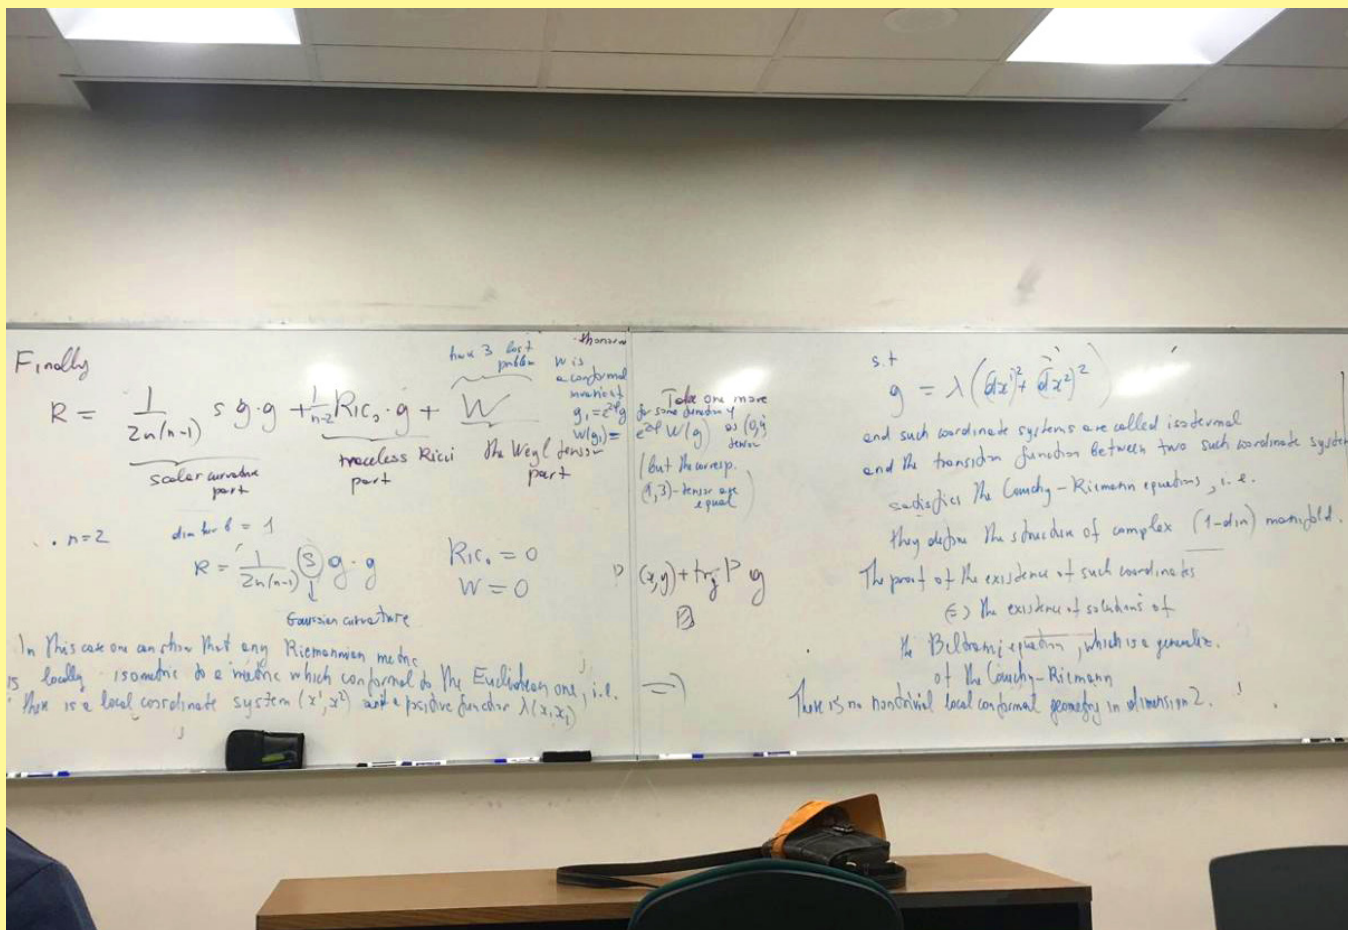 Finally
R = 1/2n(n-1) s g·g + 1/n-2 Ric₀·g + W
scalar curvature part
traceless Ricci part
the Weyl tensor part
hw 3 last problem
theorem
W is
a conformal
invariant
g₁ = e^2f g
W(g₁) =
for some function f
e^2f W(g) as (0,4) tensor
(but the corresp.
(1,3)-tensor are equal)
Take one more
· n=2
= 1
R = 1/2n(n-1) s g·g
Gaussian curvature
Ric₀ = 0
W = 0
In this case one can show that any Riemannian metric
is locally isometric to a metric which conformal to the Euclidean one, i.e.
there is a local coordinate system (x¹, x²) and a positive function
(x,y) + tr P g
⇒
s.t
g = λ((dx¹)² + (dx²)²)
and such coordinate systems are called isotermal
and the transition function between two such coordinate system
satisfies the Cauchy-Riemann equations, i.e.
they define the structure of complex (1-dim) manifold.
The proof of the existence of such coordinates
⇔ the existence of solutions of
the Beltrami equation, which is a generaliz.
of the Cauchy-Riemann
There is no nontrivial local conformal geometry in dimension 2.